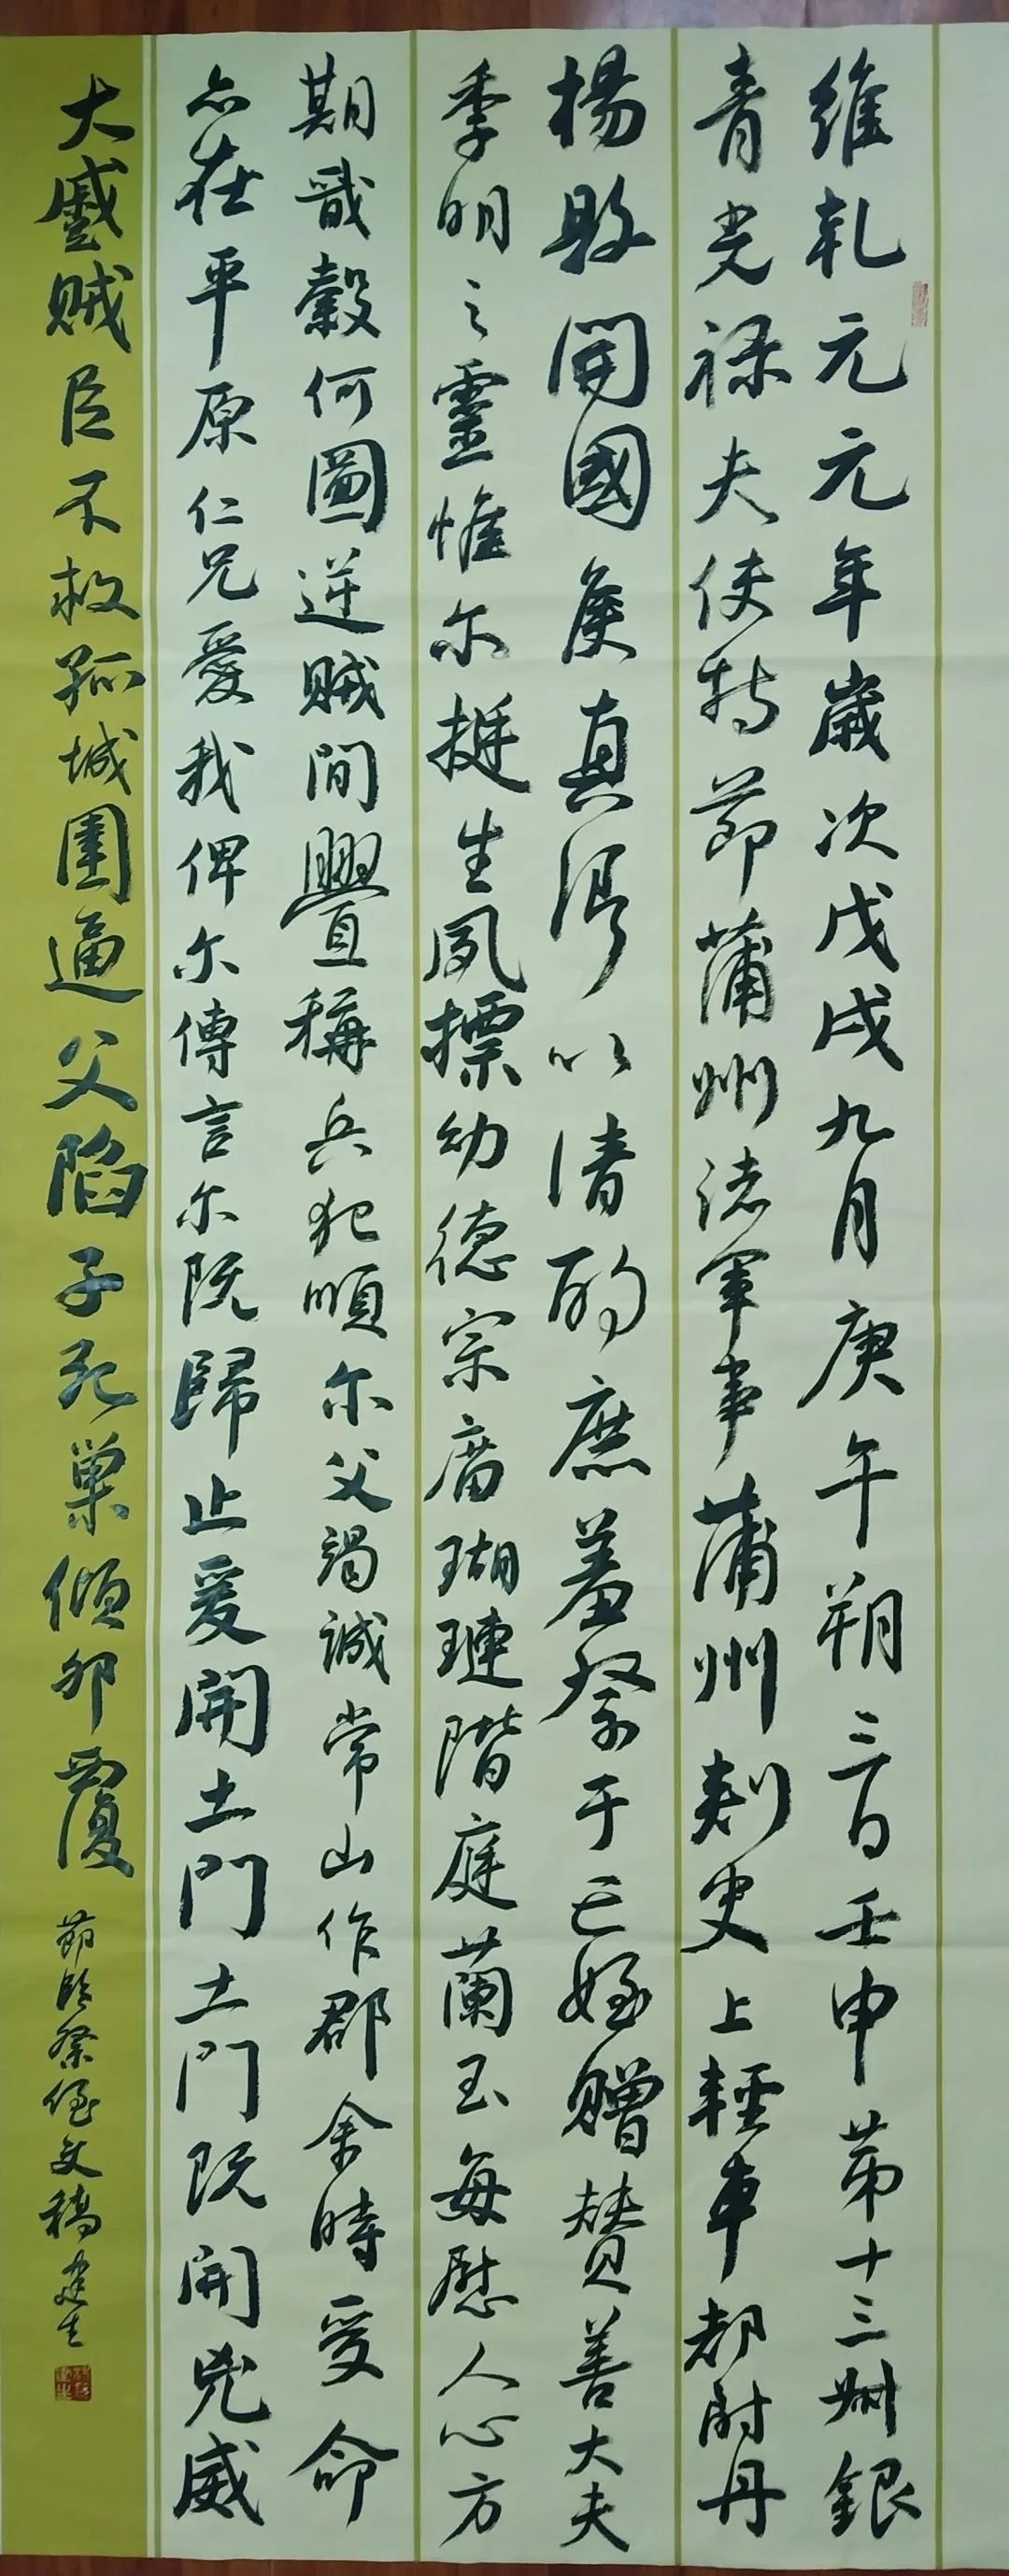 維乾元元年歲次戊戌九月庚午朔三日壬申第十三州銀
青光祿夫使持節蒲州諸軍事蒲州刺史上輕車都尉丹
楊縣開國侯真卿以清酌庶羞祭于亡姪贈贊善大夫
季明之靈惟尔挺生夙摽幼德宗廟瑚璉階庭蘭玉每慰人心方
期戩穀何圖逆賊間舋稱兵犯順尔父竭誠常山作郡余時受命
亦在平原仁兄愛我俾尔傳言尔既歸止爰開土門土門既開兇威
大蹙賊臣不救孤城圍逼父陷子死巢傾卵覆
節臨祭侄文稿建生